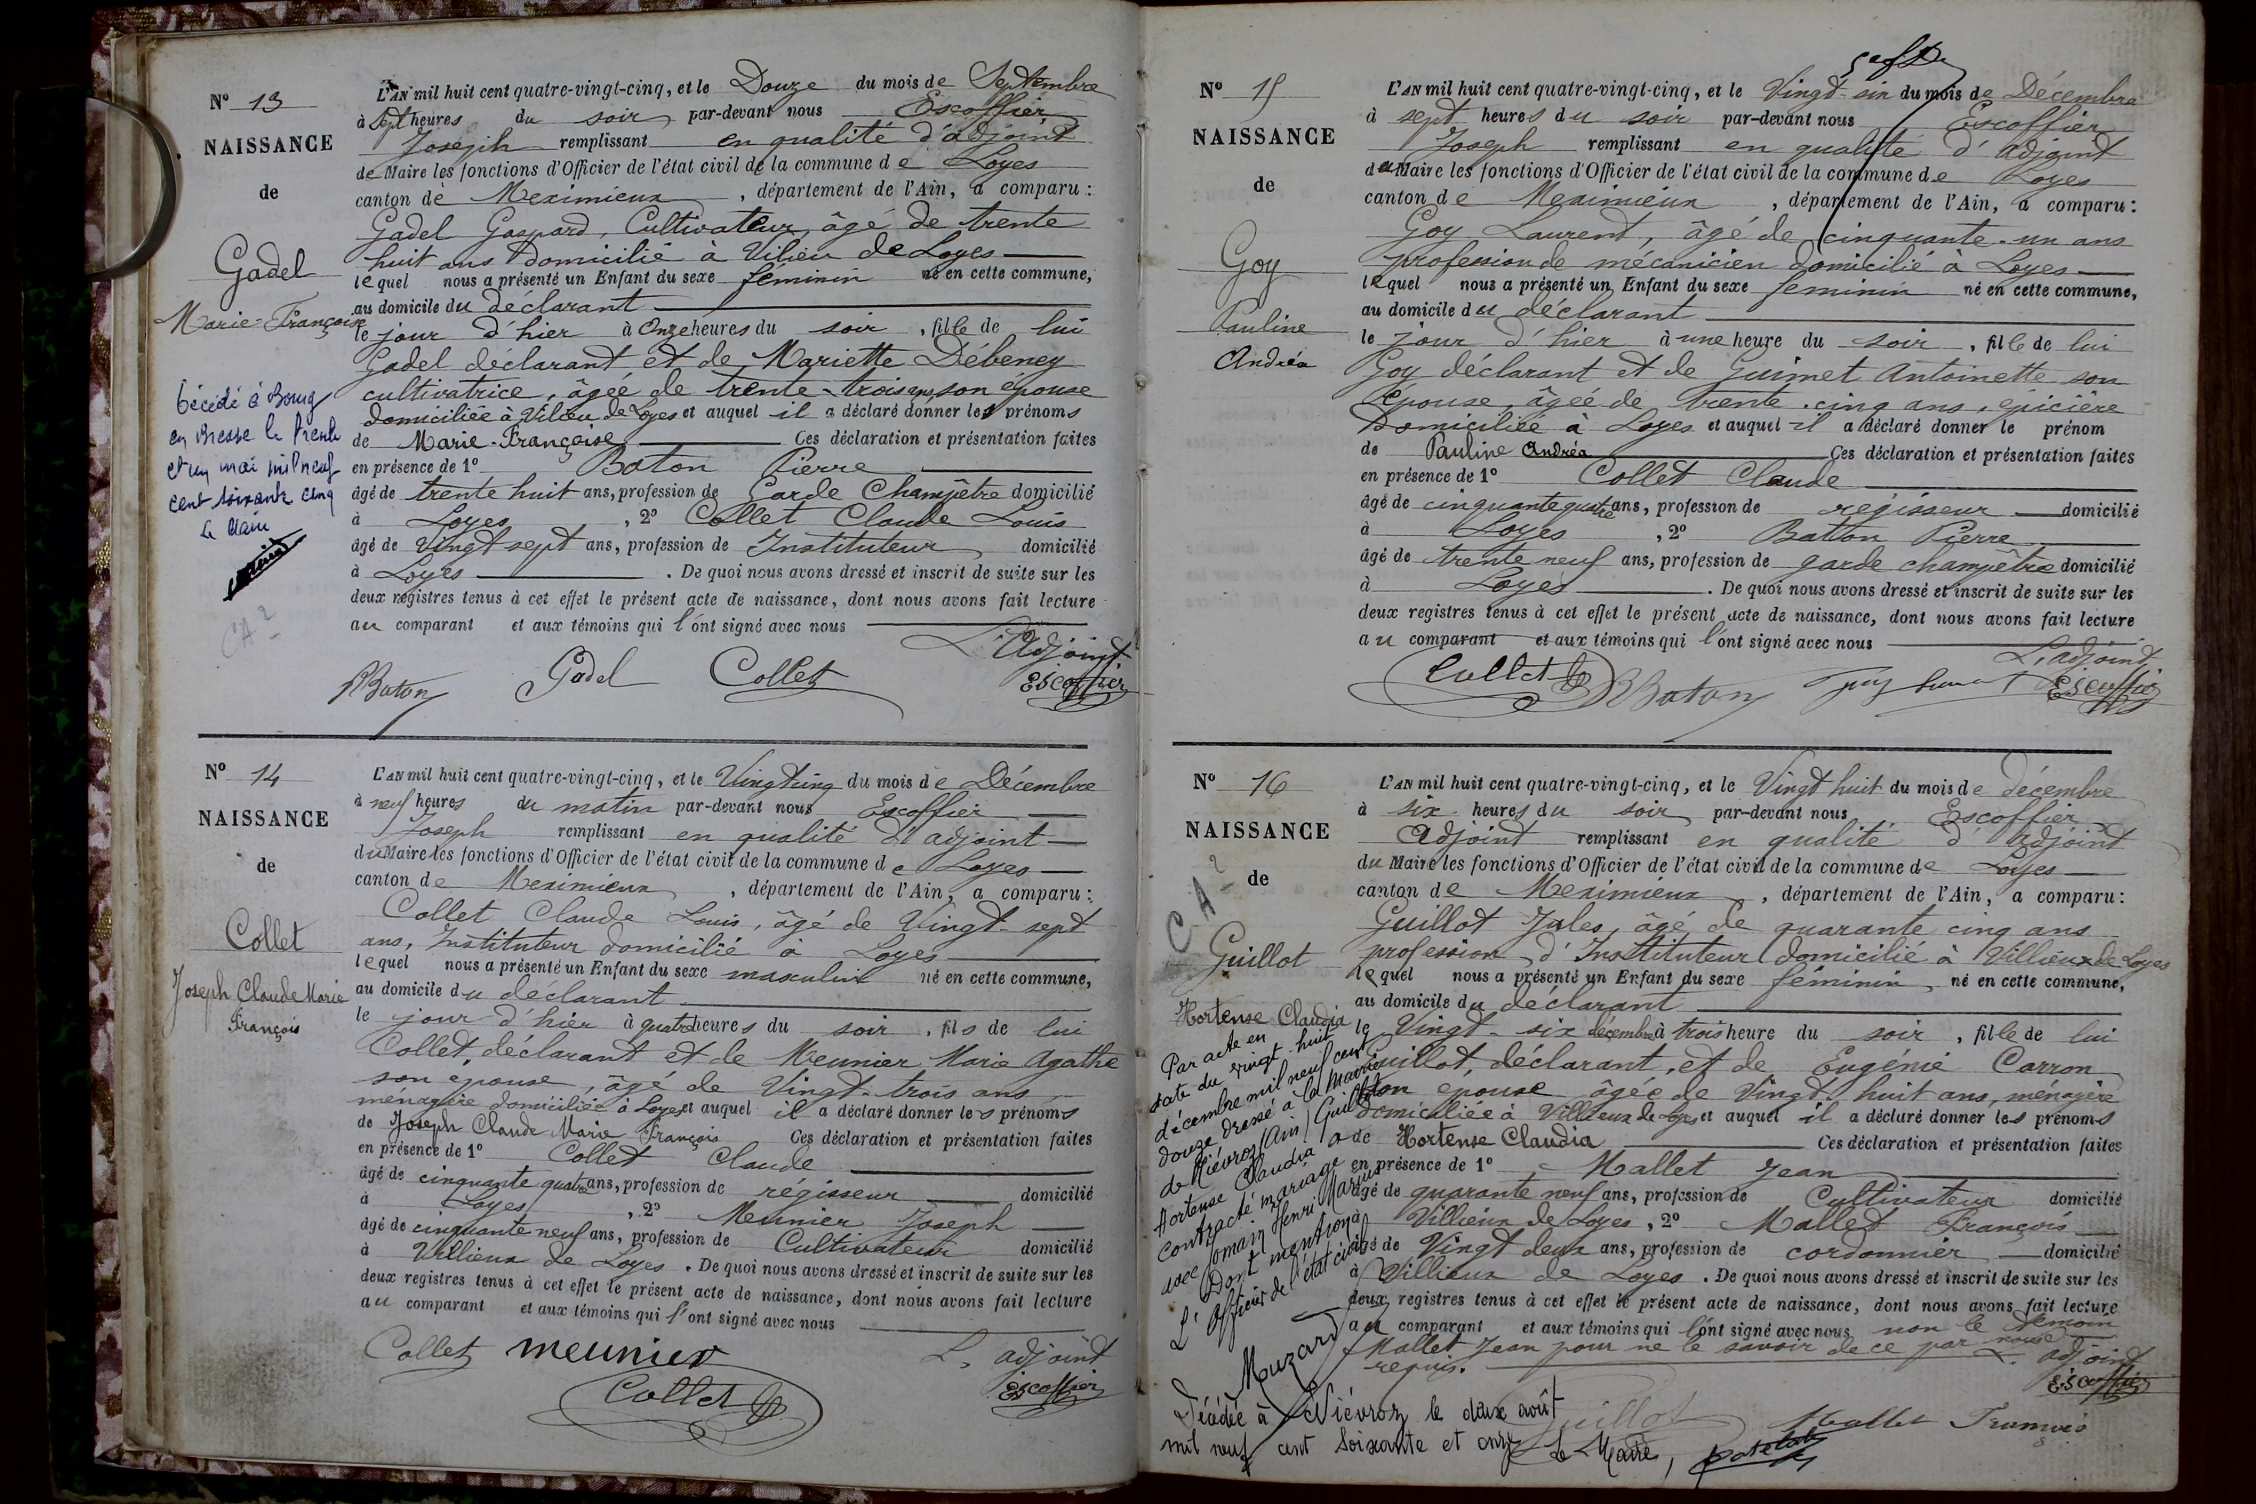 N° 13
NAISSANCE
de
Gadel
Marie-Françoise
Décédé à Bourg
en Bresse le trente
et un mai mil neuf
cent soixante cinq
Le Maire
CA 2
L'AN mil huit cent quatre-vingt-cinq, et le Douze du mois de Septembre
à sept heures du soir par-devant nous Escoffier
Joseph remplissant en qualité d'adjoint
de Maire les fonctions d'Officier de l'état civil de la commune de Loyes
canton de Meximieux, département de l'Ain, a comparu :
Gadel Gaspard, Cultivateur, âgé de trente
huit ans Domicilié à Vilieu de Loyes
lequel nous a présenté un Enfant du sexe féminin né en cette commune,
au domicile du déclarant
le jour d'hier à onze heures du soir, fille de lui
Gadel déclarant et de Mariette Débeney
cultivatrice, âgée de trente-trois ans, son épouse
domiciliée à Vilieu de Loyes et auquel il a déclaré donner les prénoms
de Marie-Françoise Ces déclaration et présentation faites
en présence de 1° Baton Pierre
âgé de trente huit ans, profession de Garde Champêtre domicilié
à Loyes, 2° Collet Claude Louis
âgé de Vingt sept ans, profession de Instituteur domicilié
à Loyes. De quoi nous avons dressé et inscrit de suite sur les
deux registres tenus à cet effet le présent acte de naissance, dont nous avons fait lecture
au comparant et aux témoins qui l'ont signé avec nous
L'Adjoint
PBaton Gadel Collet Escoffier
N° 14
NAISSANCE
de
Collet
Joseph Claude Marie
François
L'AN mil huit cent quatre-vingt-cinq, et le Vingt cinq du mois de Décembre
à neuf heures du matin par-devant nous Escoffier
Joseph remplissant en qualité d'adjoint
du Maire les fonctions d'Officier de l'état civil de la commune de Loyes
canton de Meximieux, département de l'Ain, a comparu :
Collet Claude Louis, âgé de Vingt-sept
ans, Instituteur domicilié à Loyes
lequel nous a présenté un Enfant du sexe masculin né en cette commune,
au domicile du déclarant
le jour d'hier à quatre heures du soir, fils de lui
Collet, déclarant et de Meunier Marie Agathe
son épouse, âgé de Vingt-trois ans
ménagère domiciliée à Loyes et auquel il a déclaré donner les prénoms
de Joseph Claude Marie François Ces déclaration et présentation faites
en présence de 1° Collet Claude
âgé de cinquante quatre ans, profession de régisseur domicilié
à Loyes, 2° Meunier Joseph
âgé de cinquante neuf ans, profession de Cultivateur domicilié
à Villieux de Loyes. De quoi nous avons dressé et inscrit de suite sur les
deux registres tenus à cet effet le présent acte de naissance, dont nous avons fait lecture
au comparant et aux témoins qui l'ont signé avec nous
Collet meunier L'adjoint
Collet Escoffier
N° 15
NAISSANCE
de
Goy
Pauline
Andréa
L'AN mil huit cent quatre-vingt-cinq, et le Vingt-six du mois de Décembre
à sept heures du soir par-devant nous Escoffier
Joseph remplissant en qualité d'adjoint
du Maire les fonctions d'Officier de l'état civil de la commune de Loyes
canton de Meximieux, département de l'Ain, a comparu :
Goy Laurent, âgé de cinquante-un ans
profession de mécanicien domicilié à Loyes
lequel nous a présenté un Enfant du sexe féminin né en cette commune,
au domicile du déclarant
le jour d'hier à une heure du soir, fille de lui
Goy déclarant et de Guimet Antoinette son
épouse, âgée de trente-cinq ans, épicière
Domiciliée à Loyes et auquel il a déclaré donner le prénom
de Pauline Andréa Ces déclaration et présentation faites
en présence de 1° Collet Claude
âgé de cinquante quatre ans, profession de régisseur domicilié
à Loyes, 2° Batton Pierre
âgé de trente neuf ans, profession de garde champêtre domicilié
à Loyes. De quoi nous avons dressé et inscrit de suite sur les
deux registres tenus à cet effet le présent acte de naissance, dont nous avons fait lecture
au comparant et aux témoins qui l'ont signé avec nous
L'adjoint
Collet PBaton Goy Laurent Escoffier
N° 16
NAISSANCE
de
CA 2
Guillot
Hortense Claudia
Par acte en
date du vingt-huit
décembre mil neuf cent
douze dressé à la Mairie
de Niévroz (Ain) Guillot
Hortense Claudia a
contracté mariage
avec Jomain Henri Marius
Dont mention
L'Officier de l'état civil
Muzard
L'AN mil huit cent quatre-vingt-cinq, et le Vingt huit du mois de décembre
à six heures du soir par-devant nous Escoffier
Adjoint remplissant en qualité d'adjoint
du Maire les fonctions d'Officier de l'état civil de la commune de Loyes
canton de Meximieux, département de l'Ain, a comparu :
Guillot Jules, âgé de quarante cinq ans
profession d'Instituteur domicilié à Villieux de Loyes
lequel nous a présenté un Enfant du sexe féminin né en cette commune,
au domicile du déclarant
le Vingt-six décembre à trois heure du soir, fille de lui
Guillot, déclarant, et de Eugénie Carron
son épouse âgée de Vingt-huit ans, ménagère
domiciliée à Villieux de Loyes et auquel il a déclaré donner les prénoms
de Hortense Claudia Ces déclaration et présentation faites
en présence de 1° Mallet Jean
âgé de quarante neuf ans, profession de Cultivateur domicilié
à Villieux de Loyes, 2° Mallet François
âgé de Vingt deux ans, profession de cordonnier domicilié
à Villieux de Loyes. De quoi nous avons dressé et inscrit de suite sur les
deux registres tenus à cet effet le présent acte de naissance, dont nous avons fait lecture
au comparant et aux témoins qui l'ont signé avec nous non le témoin
Mallet Jean pour ne le savoir de ce par nous
requis. L'adjoint
Escoffier
Guillot Mallet François
Décédée à Niévroz le deux août
mil neuf cent soixante et onze Le Maire,